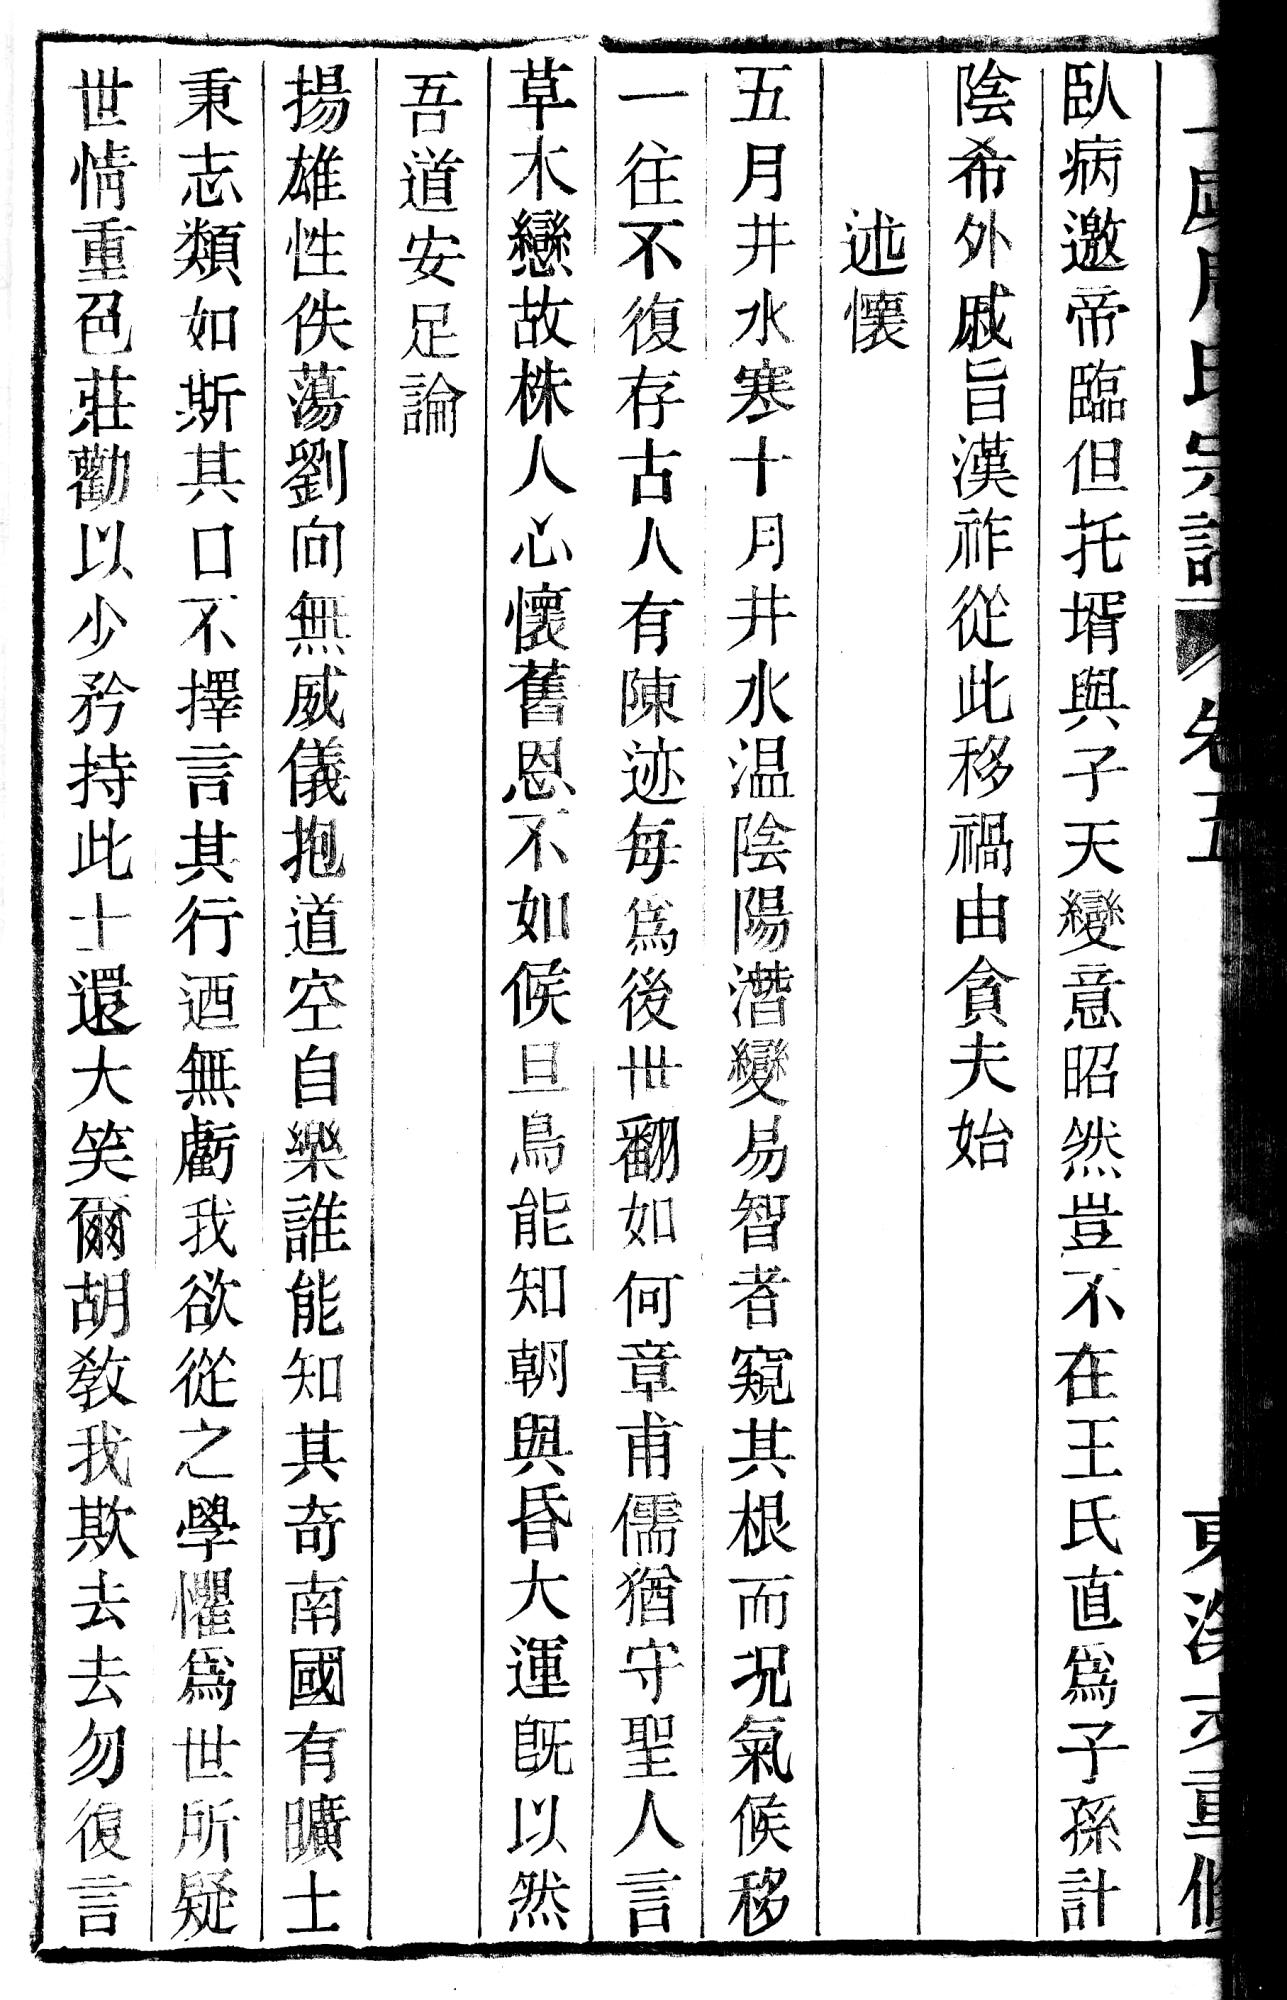 氏宗譜 卷五
重修
臥病邀帝臨但托壻與子天變意昭然豈不在王氏直爲子孫計
陰希外戚旨漢祚從此移禍由貪夫始
述懷
五月井水寒十月井水温陰陽潛變易智者窺其根而况氣候移
一往不復存古人有陳迹每爲後世翻如何章甫儒猶守聖人言
草木戀故株人心懷舊恩不如候旦鳥能知朝與昏大運旣以然
吾道安足論
揚雄性佚蕩劉向無威儀抱道空自樂誰能知其奇南國有曠士
秉志類如斯其口不擇言其行迺無虧我欲從之學懼爲世所疑
世情重色莊勸以少矜持此士還大笑爾胡敎我欺去去勿復言